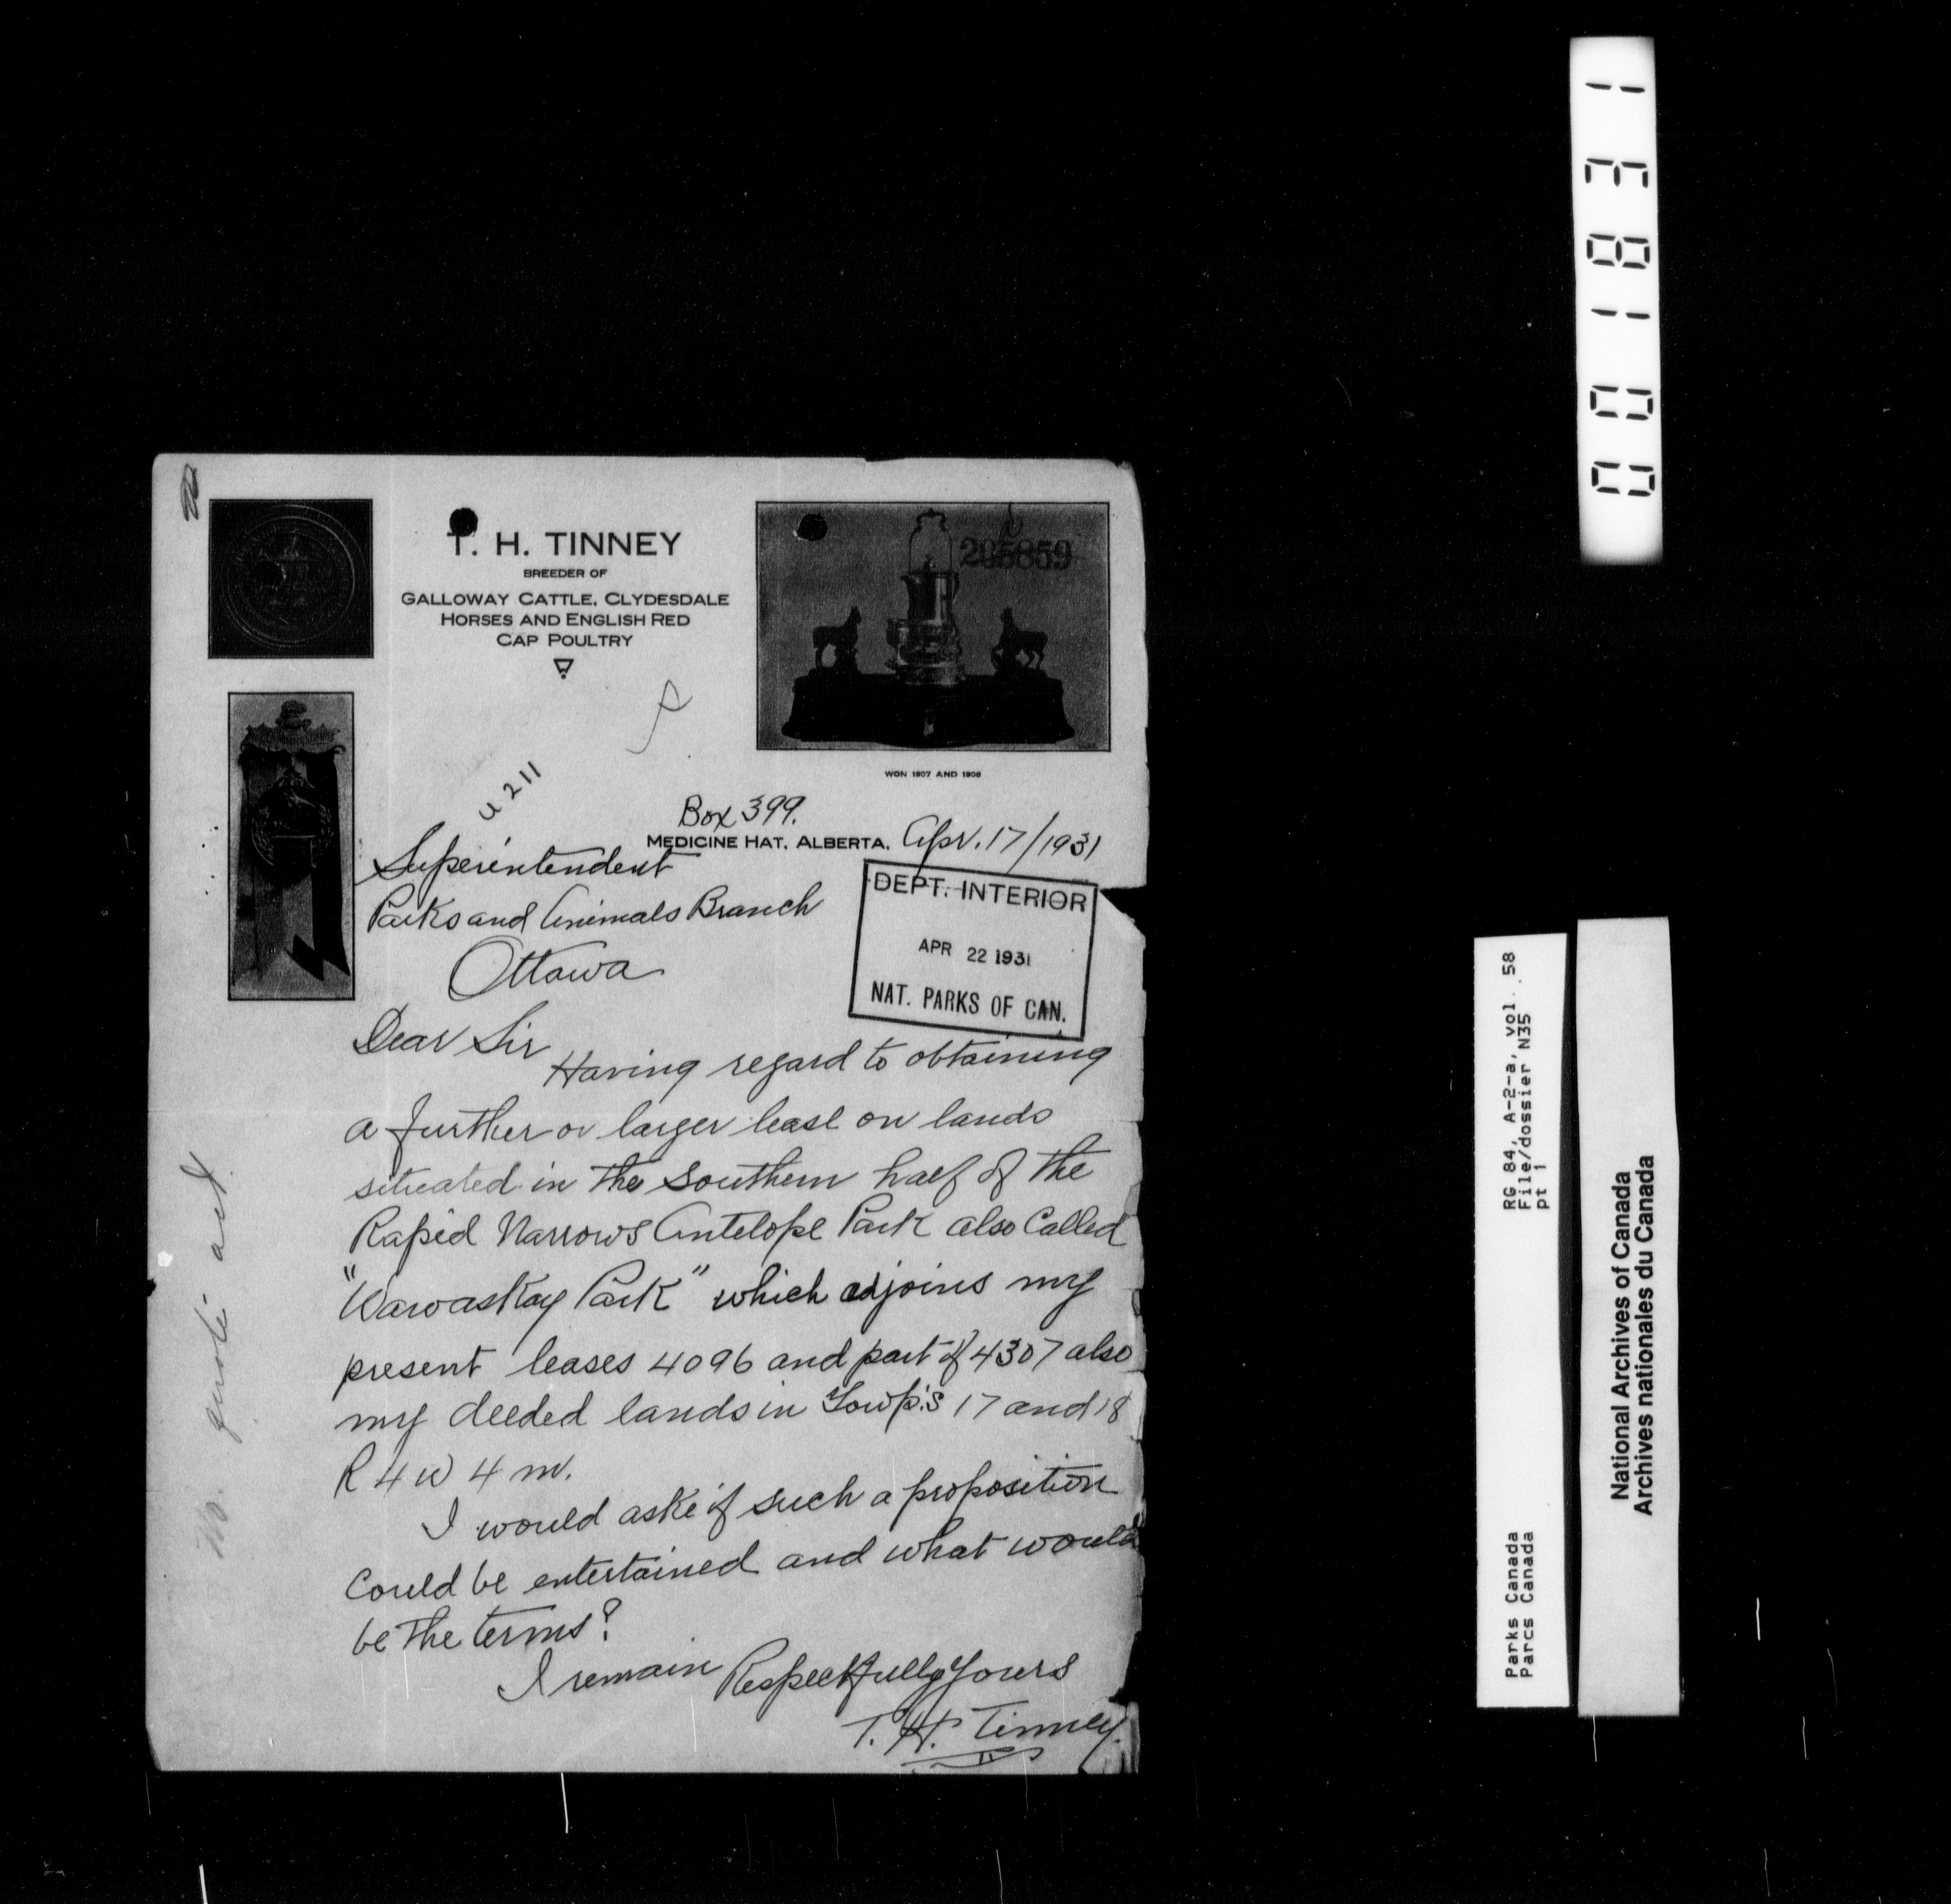 T. H. TINNEY
BREEDER OF
GALLOWAY CATTLE, CLYDESDALE
HORSES AND ENGLISH RED
CAP POULTRY
205859
WON 1907 AND 1908
U 211
Box 399.
MEDICINE HAT, ALBERTA, Apr. 17/1931
Superintendent
Parks and Animals Branch
Ottawa
DEPT. INTERIOR
APR 22 1931
NAT. PARKS OF CAN.
Dear Sir
Having regard to obtaining
a further or larger lease on lands
situated in the southern half of the
Rapid Narrows Antelope Park also Called
"Wawaskay Park" which adjoins my
present leases 4096 and part of 4307 also
my deeded lands in Towp's 17 and 18
R 4 W 4 m.
I would aske if such a proposition
Could be entertained and what would
be the terms?
I remain Respectfully Yours
T. H. Tinney.
001831
RG 84, A-2-a, vol. 58
File/dossier N35
pt 1
Parks Canada
Parcs Canada
National Archives of Canada
Archives nationales du Canada